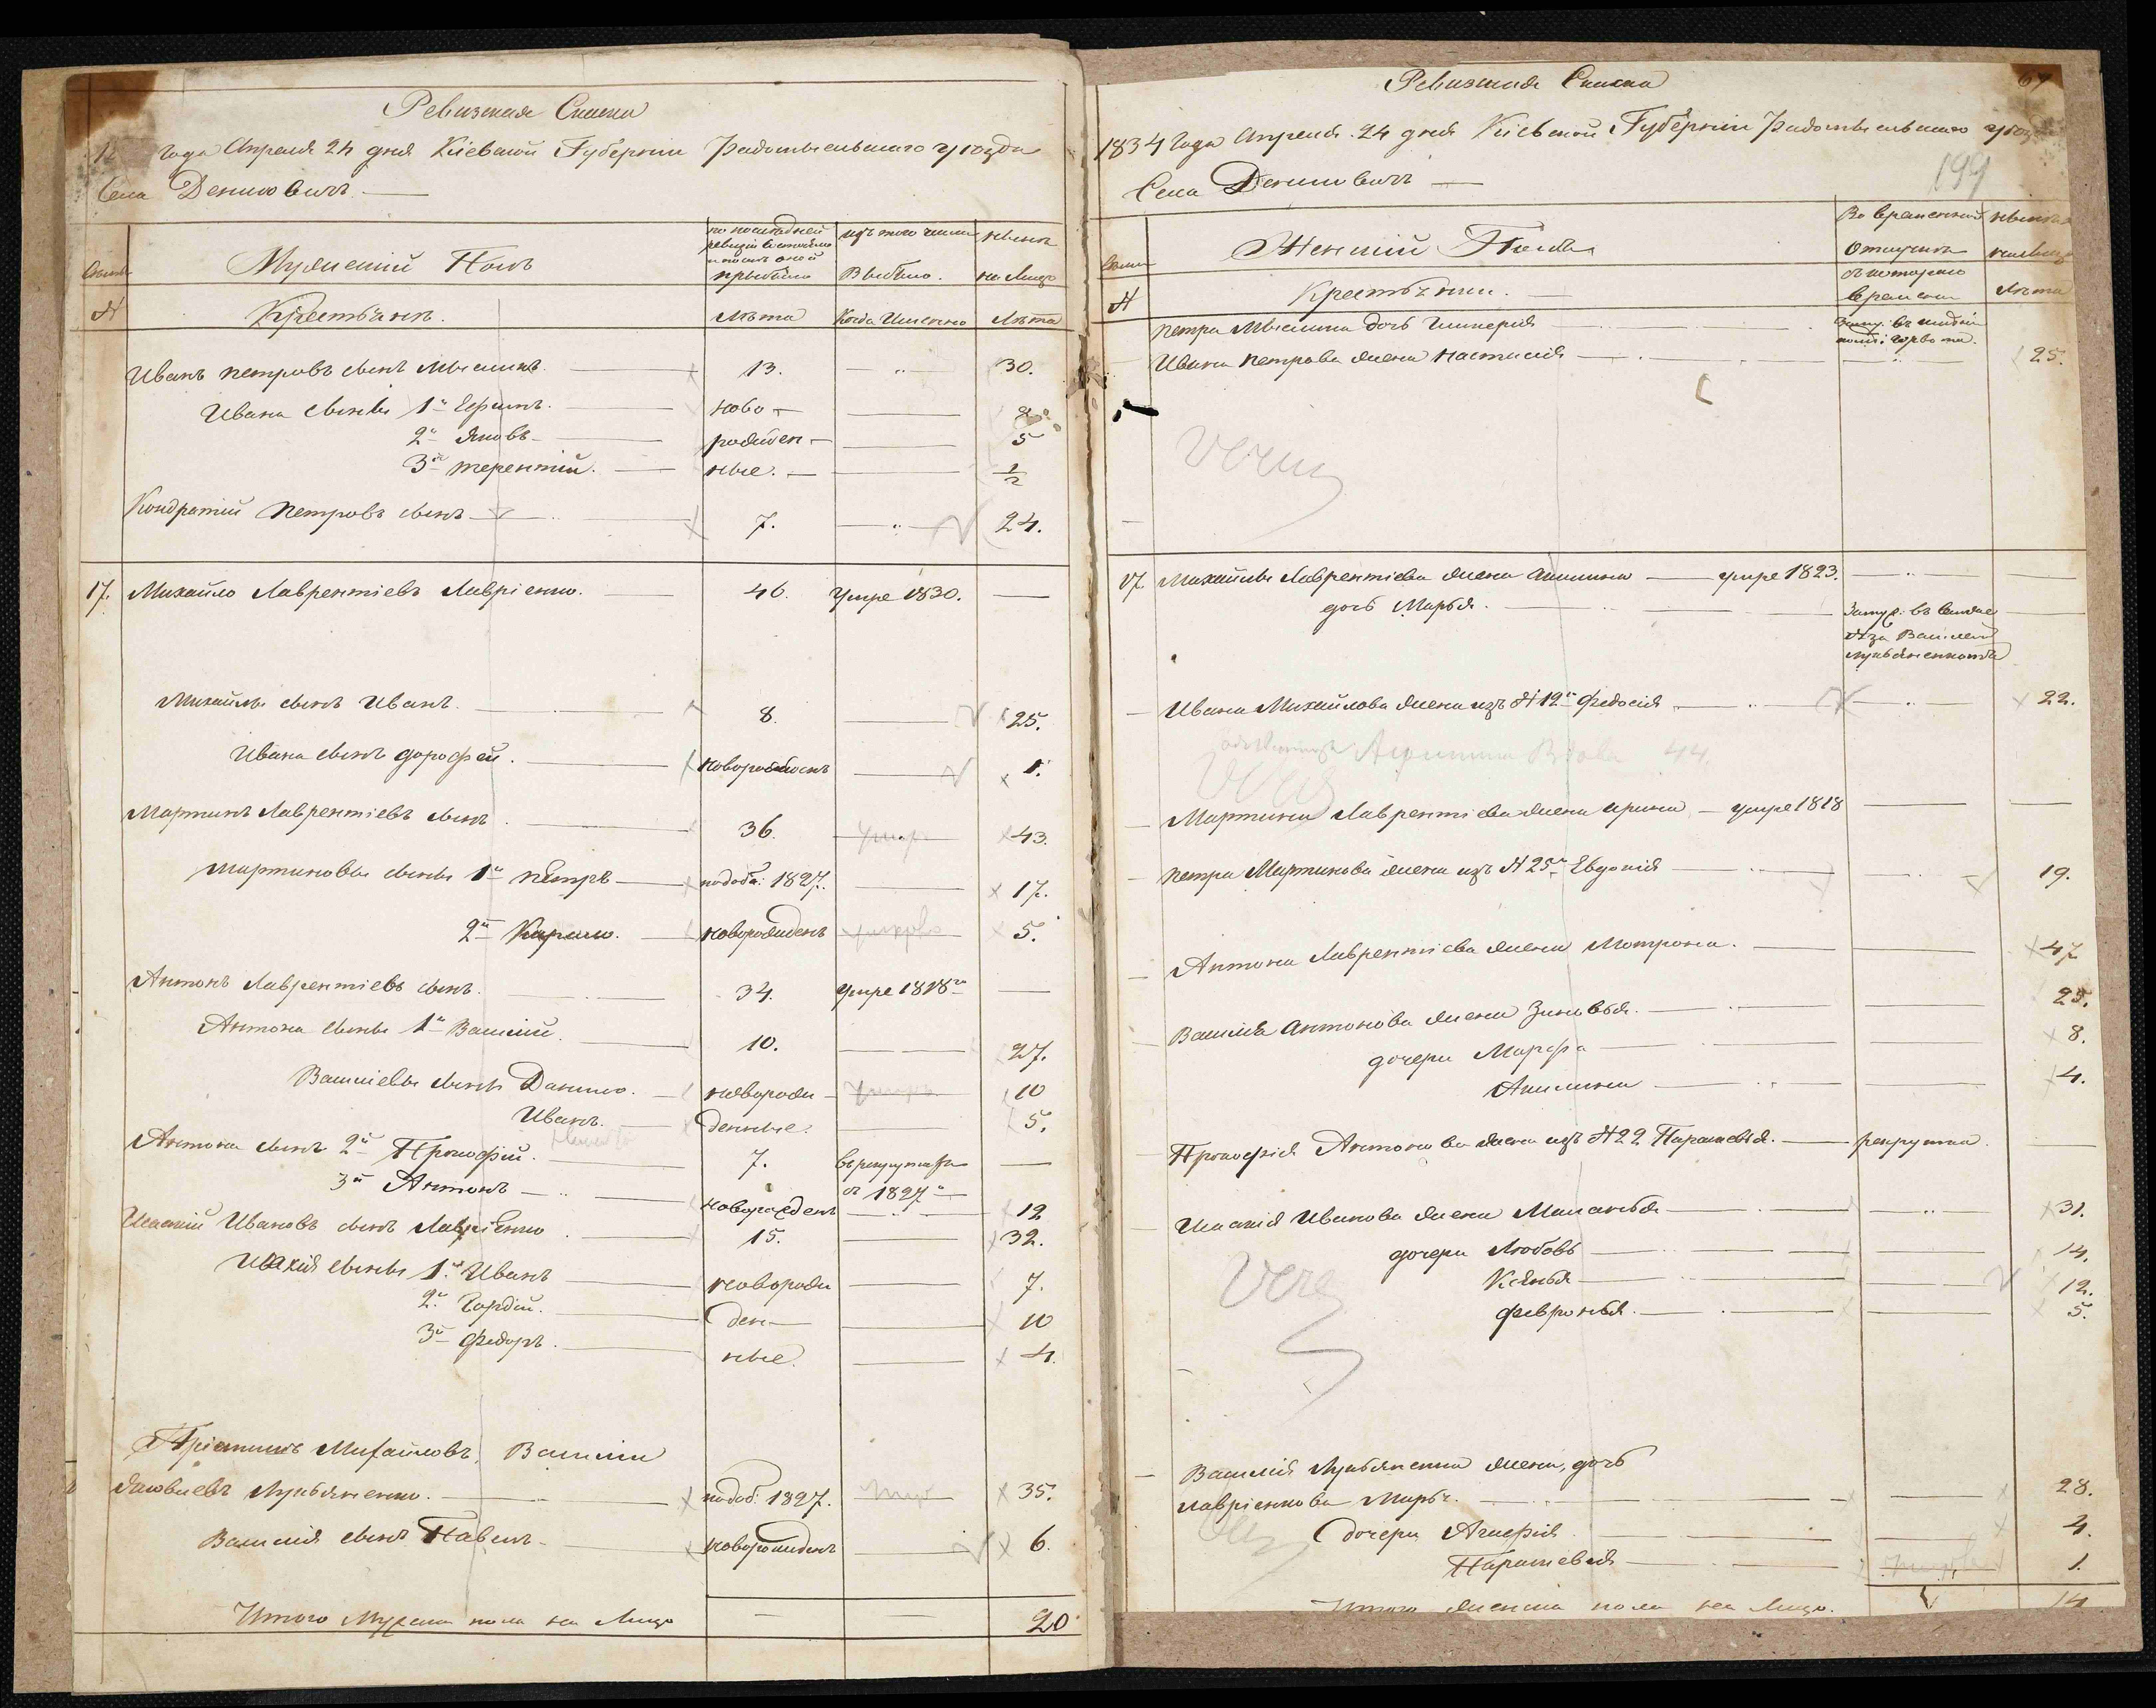 Ревизская Сказка
года Апреля 24 дня Кіевской Губерніи Радомысльскаго уезда
Села Денисовичь
Семьи
Мужескій Полъ
по последней ревизіи состояло и после оной прыбыло
изъ того числа Выбыло.
ныне на Лицо
№
Крестьянъ.
Лета
Когда Именно
Лета
Иванъ петровъ сынъ 13. 30.
Ивана сыновья 1й Ефимъ. ново-
2й Яковъ рожден- 5
3й терентій. ные. 1/2
Кондратій Петровъ сынъ 7. 24.
17. Михайло Лаврентіевъ Лавріенко. 46. Умре 1830.
Михайлы сынъ Иванъ. 8. 25.
Ивана сынъ дорофей. новорожденъ 1.
Мартинъ Лаврентіевъ сынъ 36. умер 43.
мартиновы сыны 1й петръ подоба: 1827. 17.
2й новорожденъ 5.
Антонъ Лаврентіевъ сынъ. 34. Умре 1818го
Антона сыны 1й Василій. 10. 27.
Василіевы сыны Данило. новорож- 10
Иванъ. денные. 5.
Антона сынъ 2й Прокофій. 7. въ рекрутахъ
3й Антонъ новорожденъ съ 1827го 12
Исакій Ивановъ сынъ Лавріенко 15. 32.
Исакія сыны 1й Иванъ новорож 7.
2й Гордій. ден- 10
3й Федоръ. ные. 4.
Пріемышъ Михайловъ, Василій
Яковлевъ Лукьяненко. подоб: 1827. 35.
Василія сынъ Павелъ новорожденъ 6.
Итого Мужеска пола на Лицо 20
67
Ревизская Сказка
1834 Года Апреля 24 дня Кіевской Губерніи Радомысльскаго уезд
199
Села Денисовичь
Семьи
Женскій Полъ
Во временной отлучкъ
ныне на лицо
№
Крестьянки.
съ котораго времени
Лета
петра дочь
Ивана Петрова жена Настасія 25.
17. Михайлы Лаврентіева жена Акилина умре 1823.
дочь Марья. Замуж: въ семье
№ за Василіем
лукьяненкомъ
Ивана Михайлова жена изъ № 12го Федосія 22.
Вдова 44.
Мартина Лаврентіева жена ирина умре 1818
петра Мартинова жена изъ № 25го Евдокія 19.
Антона Лаврентіева жена Мотрона. 47
Василія Антонова жена Зиновья. 25.
дочери Марфа 8.
Акилина 4.
Прокофія Антонова жена изъ № 22 Парасковья. рекрутка
Исакія Иванова жена Маланья 31.
дочери Любовь 14.
Ксенья 12.
февронья. 5.
Василія Лукьяненка жена, дочь
лавріенкова Марья. 28.
дочери Агафія 4.
Парасковія 1.
Итого женска пола на Лицо. 14